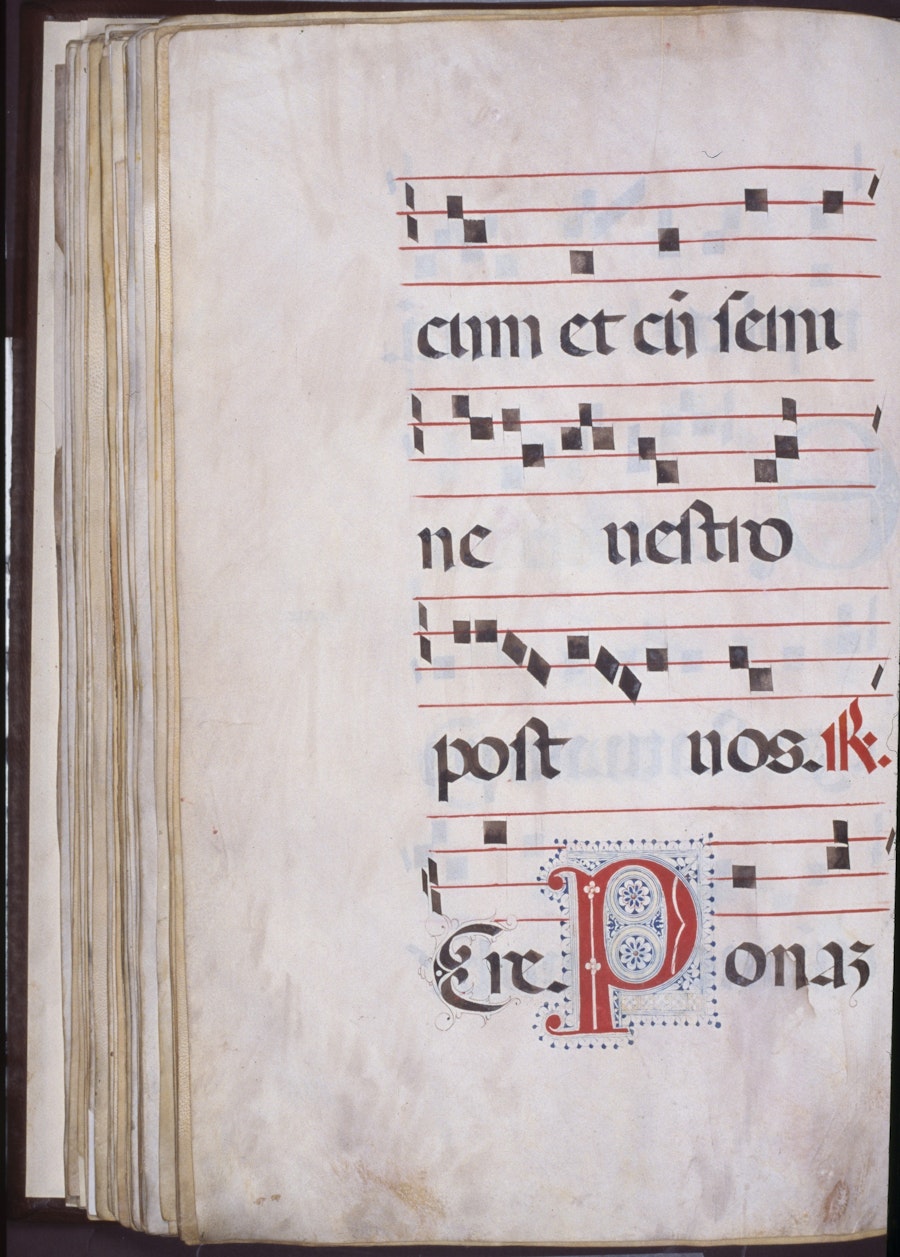 cum et cū ſemi
ne veſtro
poſt vos. ℟:
Ere. Ponaꝫ